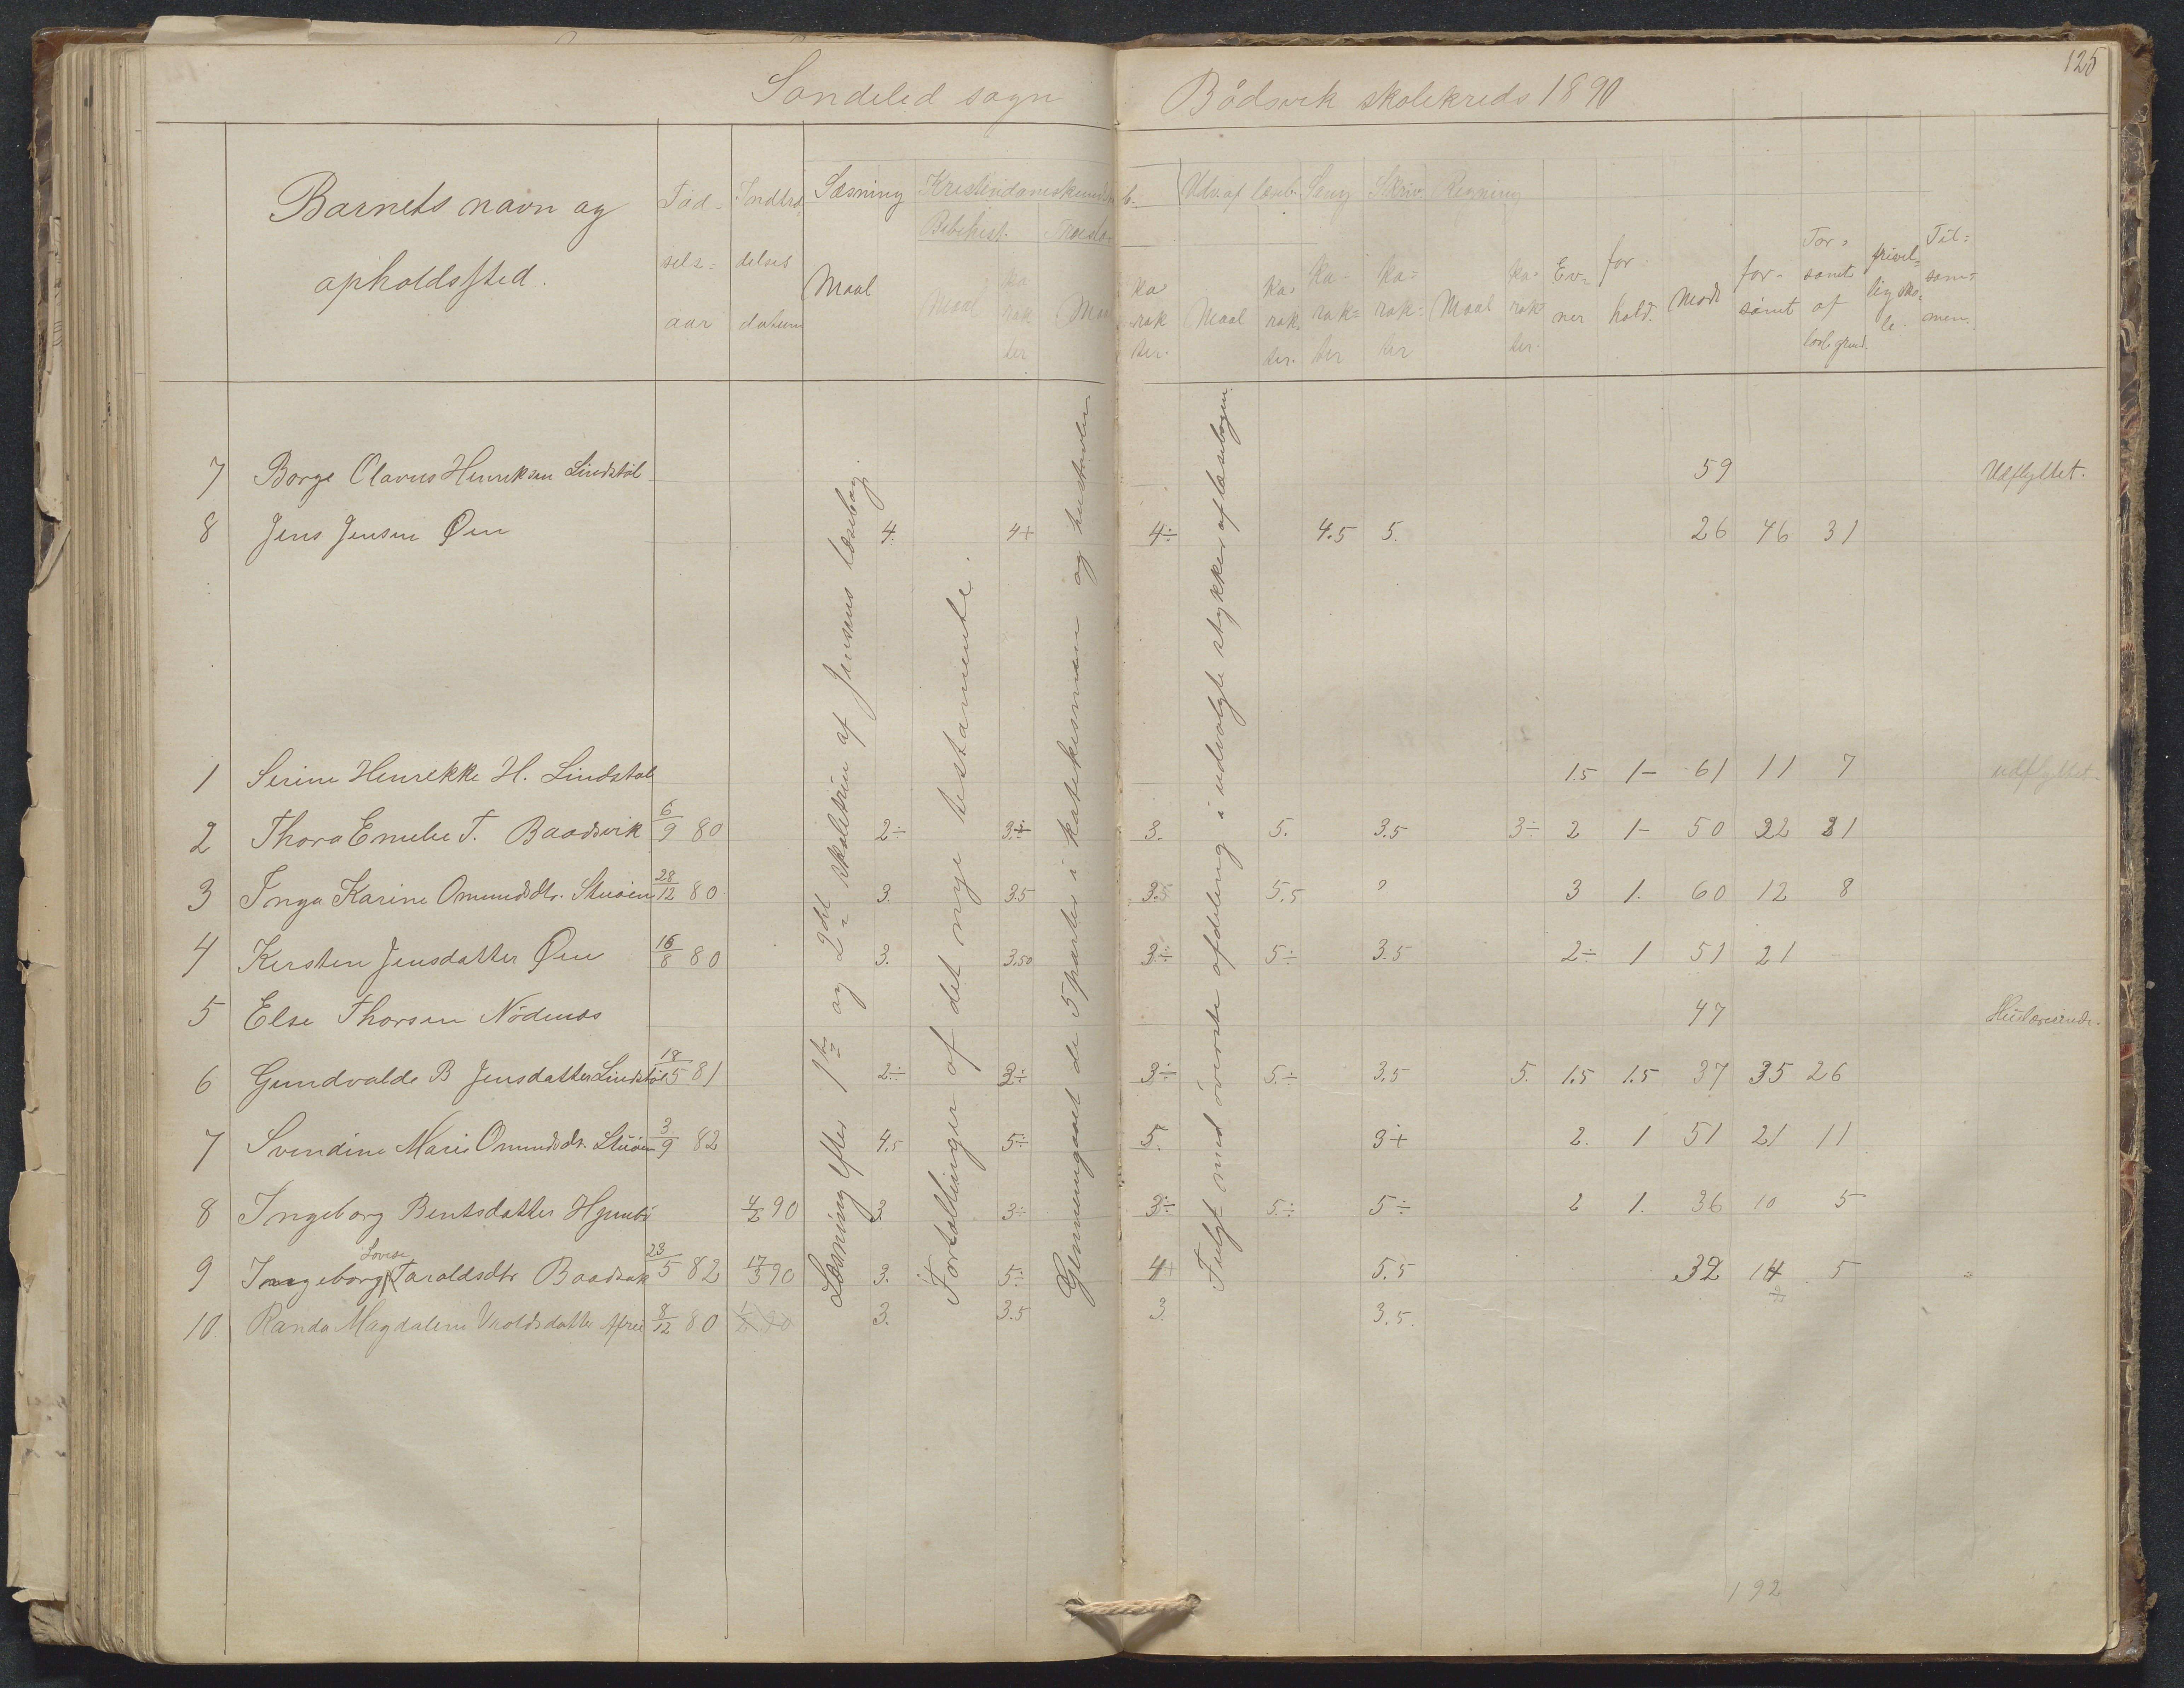 125
Sondeled sogn Bådsvik skolekreds 1890
Barnets navn og opholdssted.
Födselsaar
Indtrædelses datum
Læsning
Maal
Kristendomskundsk
Bibelhist.
Maal
karakter
karakter.
Udv. af læseb.
Maal
karakter.
Sang
karakter
Skriv.
karakter
Regning
Maal
karakter.
Evner
forhold.
Mödt
forsömt
Forsömt af lovl. grund.
frivillig skole.
Tilsammen.
7 Borge Olavus Henriksen Lindstöl 59 Udflyttet.
8 Jens Jensen Öen 4. 4+ 4÷ 4.5 5. 26 46 31
1 Serine Henrekke H. Lindstöl 1.5 1- 61 11 7 udflyttet.
2 Thora Emelie T. Baadsvik 6/9 80 2÷ 3÷ 3. 5. 3.5 3÷ 2 1- 50 22 21
3 Inga Karine Omundsdtr. Stuöen 28/12 80 3. 3.5 3.5 5.5 ? 3 1. 60 12 8
4 Kersten Jensdatter Öen 16/8 80 3. 3.50 3÷ 5÷ 3.5 2÷ 1 51 21 -
5 Else Thorsen Nödenes 47
6 Gundvalde B Jensdatter Lindstöl 18/5 81 2÷ 3÷ 3÷ 5÷ 3.5 5. 1.5 1.5 37 35 26
7 Svendine Marie Omundsdtr. Stuöen 3/9 82 4.5 5÷ 5. 3+ 2. 1 51 21 11
8 Ingeborg Bentsdatter 4/2 90 3 3÷ 3÷ 5÷ 5÷ 2 1. 36 10 5
9 Ingeborg Lovise Taraldsdtr Baadsvik 23/5 82 17/3 90 3. 5÷ 4+ 5.5 32 14 5
10 Randa Magdalene 8/12 80 3. 3.5 3 3.5.
Læsning efter 1ste og 2det skoletrin af Jensens læsebog.
Fortællinger af det nye testamente.
Gjennemgaaet de 5 parter i katekismen og hustavlen
Fulgt med överste afdeling i udvalgte stykker af læsebogen.
192